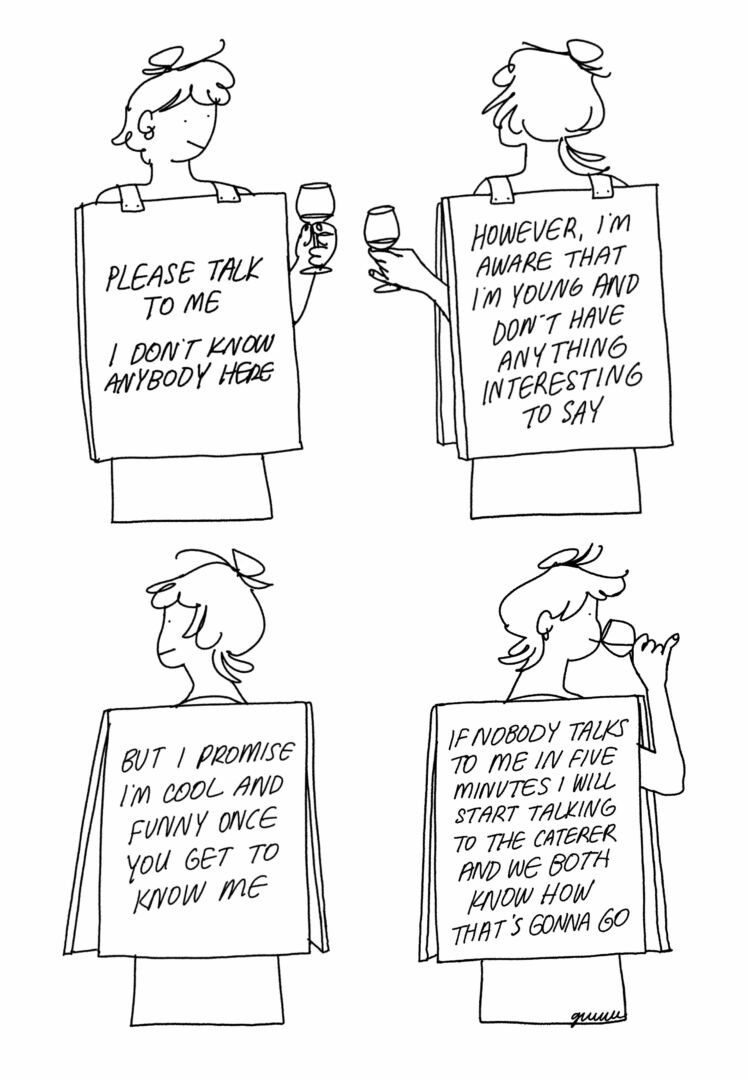 PLEASE TALK
TO ME
I DON'T KNOW
ANYBODY HERE
HOWEVER, I'M
AWARE THAT
I'M YOUNG AND
DON'T HAVE
ANYTHING
INTERESTING
TO SAY
BUT I PROMISE
I'M COOL AND
FUNNY ONCE
YOU GET TO
KNOW ME
IF NOBODY TALKS
TO ME IN FIVE
MINUTES I WILL
START TALKING
TO THE CATERER
AND WE BOTH
KNOW HOW
THAT'S GONNA GO